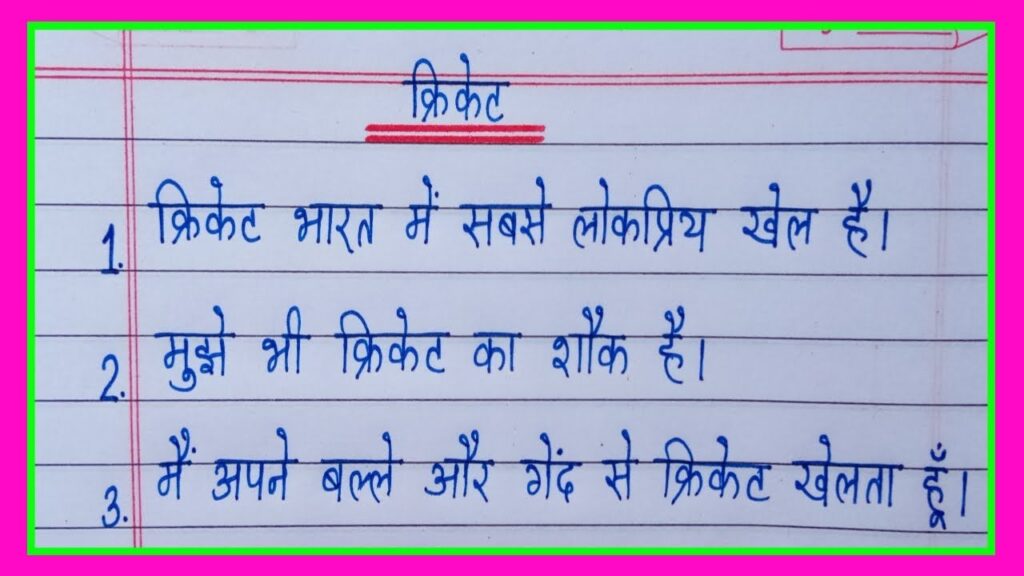 क्रिकेट
1. क्रिकेट भारत में सबसे लोकप्रिय खेल है।
2. मुझे भी क्रिकेट का शौक है।
3. मैं अपने बल्ले और गेंद से क्रिकेट खेलता हूँ।